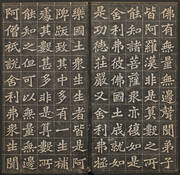 佛有無量無邊聲聞弟子
皆阿羅漢非是算數之所
能知諸菩薩眾亦復如是
舍利弗彼佛國土成就如
是功德莊嚴又舍利弗極
樂國土眾生生者皆是阿
鞞跋致其中多有一生補
處其數甚多非是算數所
能知之但可以無量無邊
阿僧祇說舍利弗眾生聞